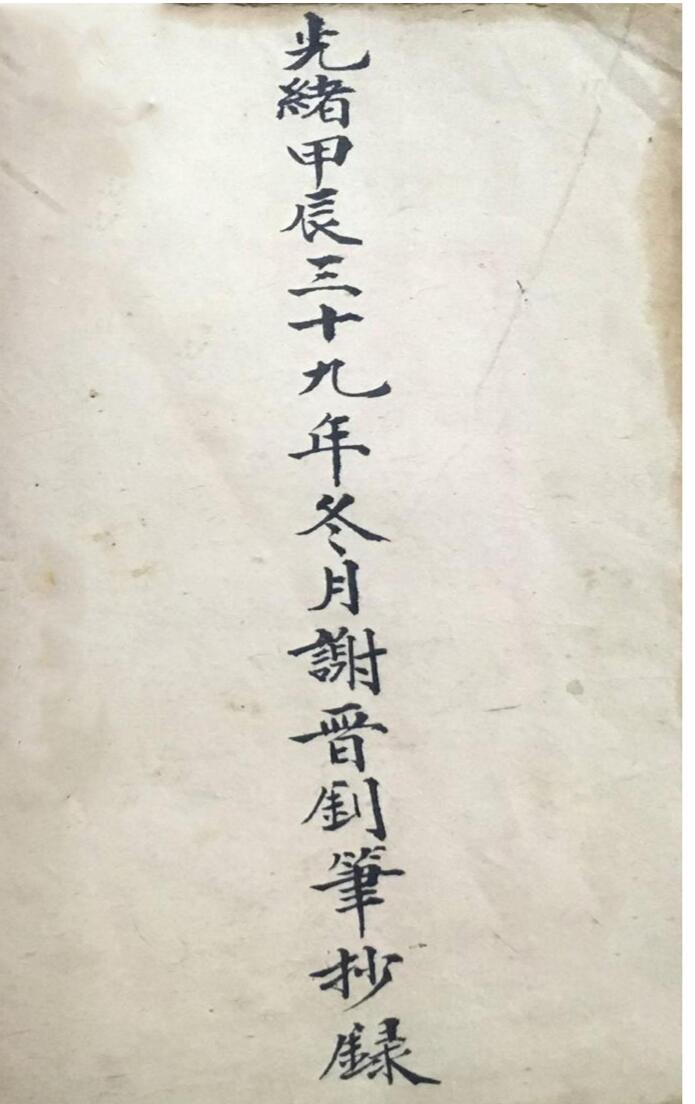 光緒甲辰三十九年冬月謝晋釗筆抄錄